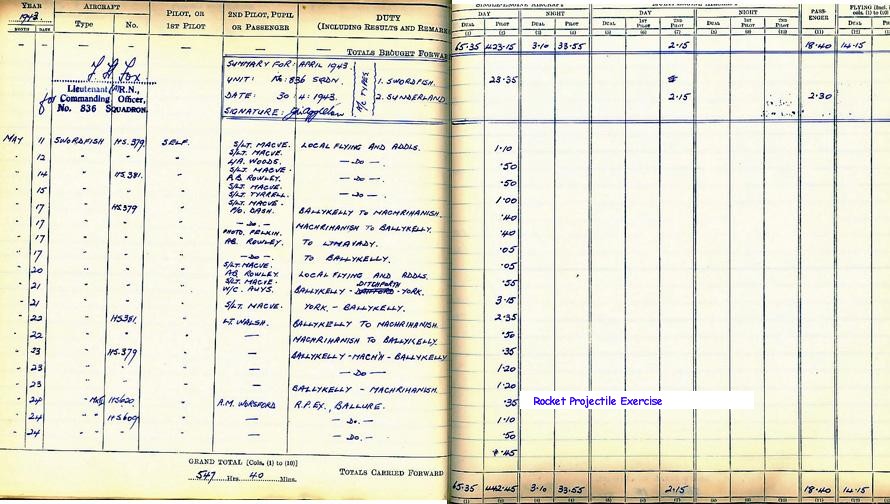 YEAR AIRCRAFT PILOT, OR 1ST PILOT 2ND PILOT, PUPIL OR PASSENGER DUTY (INCLUDING RESULTS AND REMARK
1943 Type No.
MONTH DATE
DAY NIGHT DAY NIGHT PASS-ENGER
DUAL PILOT DUAL PILOT DUAL 1ST PILOT 2ND PILOT DUAL
(1) (2) (3) (4) (5) (6) (7) (8) (9) (10) (11) (12)
TOTALS BROUGHT FORWAR 65.35 423.15 3.10 33.55 2.15 18.40 14.15
SUMMARY FOR: APRIL 1943.
UNIT: No: 836 SQDN. 1. SWORDFISH. 23.35
DATE: 30.4.1943. 2. SUNDERLAND 2.15 2.30
A/C TYPES
SIGNATURE:
for
Lieutenant (A) R.N.,
Commanding Officer,
No. 836 SQUADRON.
MAY 11 SWORDFISH HS.379 SELF. S/LT. MACVE. LOCAL FLYING AND ADDLS. 1.10
" 12 " " " S/LT. MACVE. L/A. WOODS. — DO — .50
" 14 " HS.381. " S/LT. MACVE. A.B. ROWLEY. — DO — .50
" 15 " " " S/LT. MACVE. S/LT. TYRRELL. — DO — 1.00
" 17 " HS.379 " S/LT. MACVE. P/O. DASH. BALLYKELLY TO MACHRIHANISH. .40
" 17 " " " — DO — MACHRIHANISH TO BALLYKELLY. .40
" 17 " " " PHOTO. AB. ROWLEY. TO LIMAVADY. .05
" 17 " " " — DO — TO BALLYKELLY. .05
" 20 " " " S/LT. MACVE. AB. ROWLEY. LOCAL FLYING AND ADDLS. .55
" 21 " " " S/LT. MACVE. BALLYKELLY - DITCHFORTH - YORK. 3.15
" 21 " " " S/LT. MACVE. YORK. - BALLYKELLY. 2.35
" 22 " HS381. " LT. WALSH. BALLYKELLY TO MACHRIHANISH. .50
" 22 " " " — MACHRIHANISH TO BALLYKELLY. .35
" 23 " HS.379 " — BALLYKELLY - MACH'H - BALLYKELLY 1.20
" 23 " " " — — DO — 1.20
" 23 " " " — BALLYKELLY - MACHRIHANISH. .35
Rocket Projectile Exercise
" 24 " HS620 " A.M. WORSFORD R.P. EX., BALLURE. 1.10
" 24 " HS609 " — — DO. — .50
" 24 " " " — — DO. — .45
GRAND TOTAL [Cols. (1) to (10)]
547 Hrs. 40 Mins. TOTALS CARRIED FORWARD 65.35 442.45 3.10 33.55 2.15 18.40 14.15